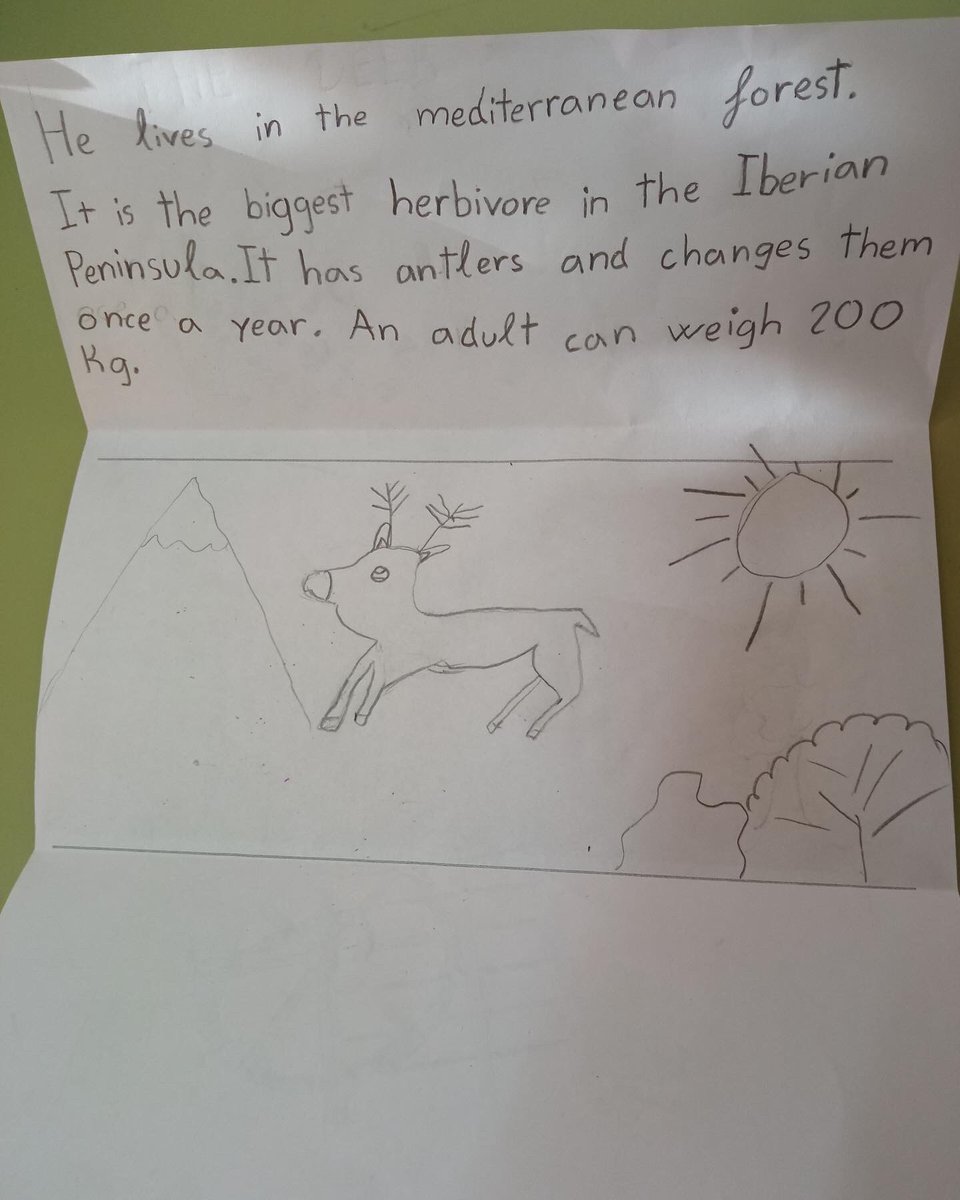 He lives in the mediterranean forest.
It is the biggest herbivore in the Iberian
Peninsula. It has antlers and changes them
once a year. An adult can weigh 200
Kg.